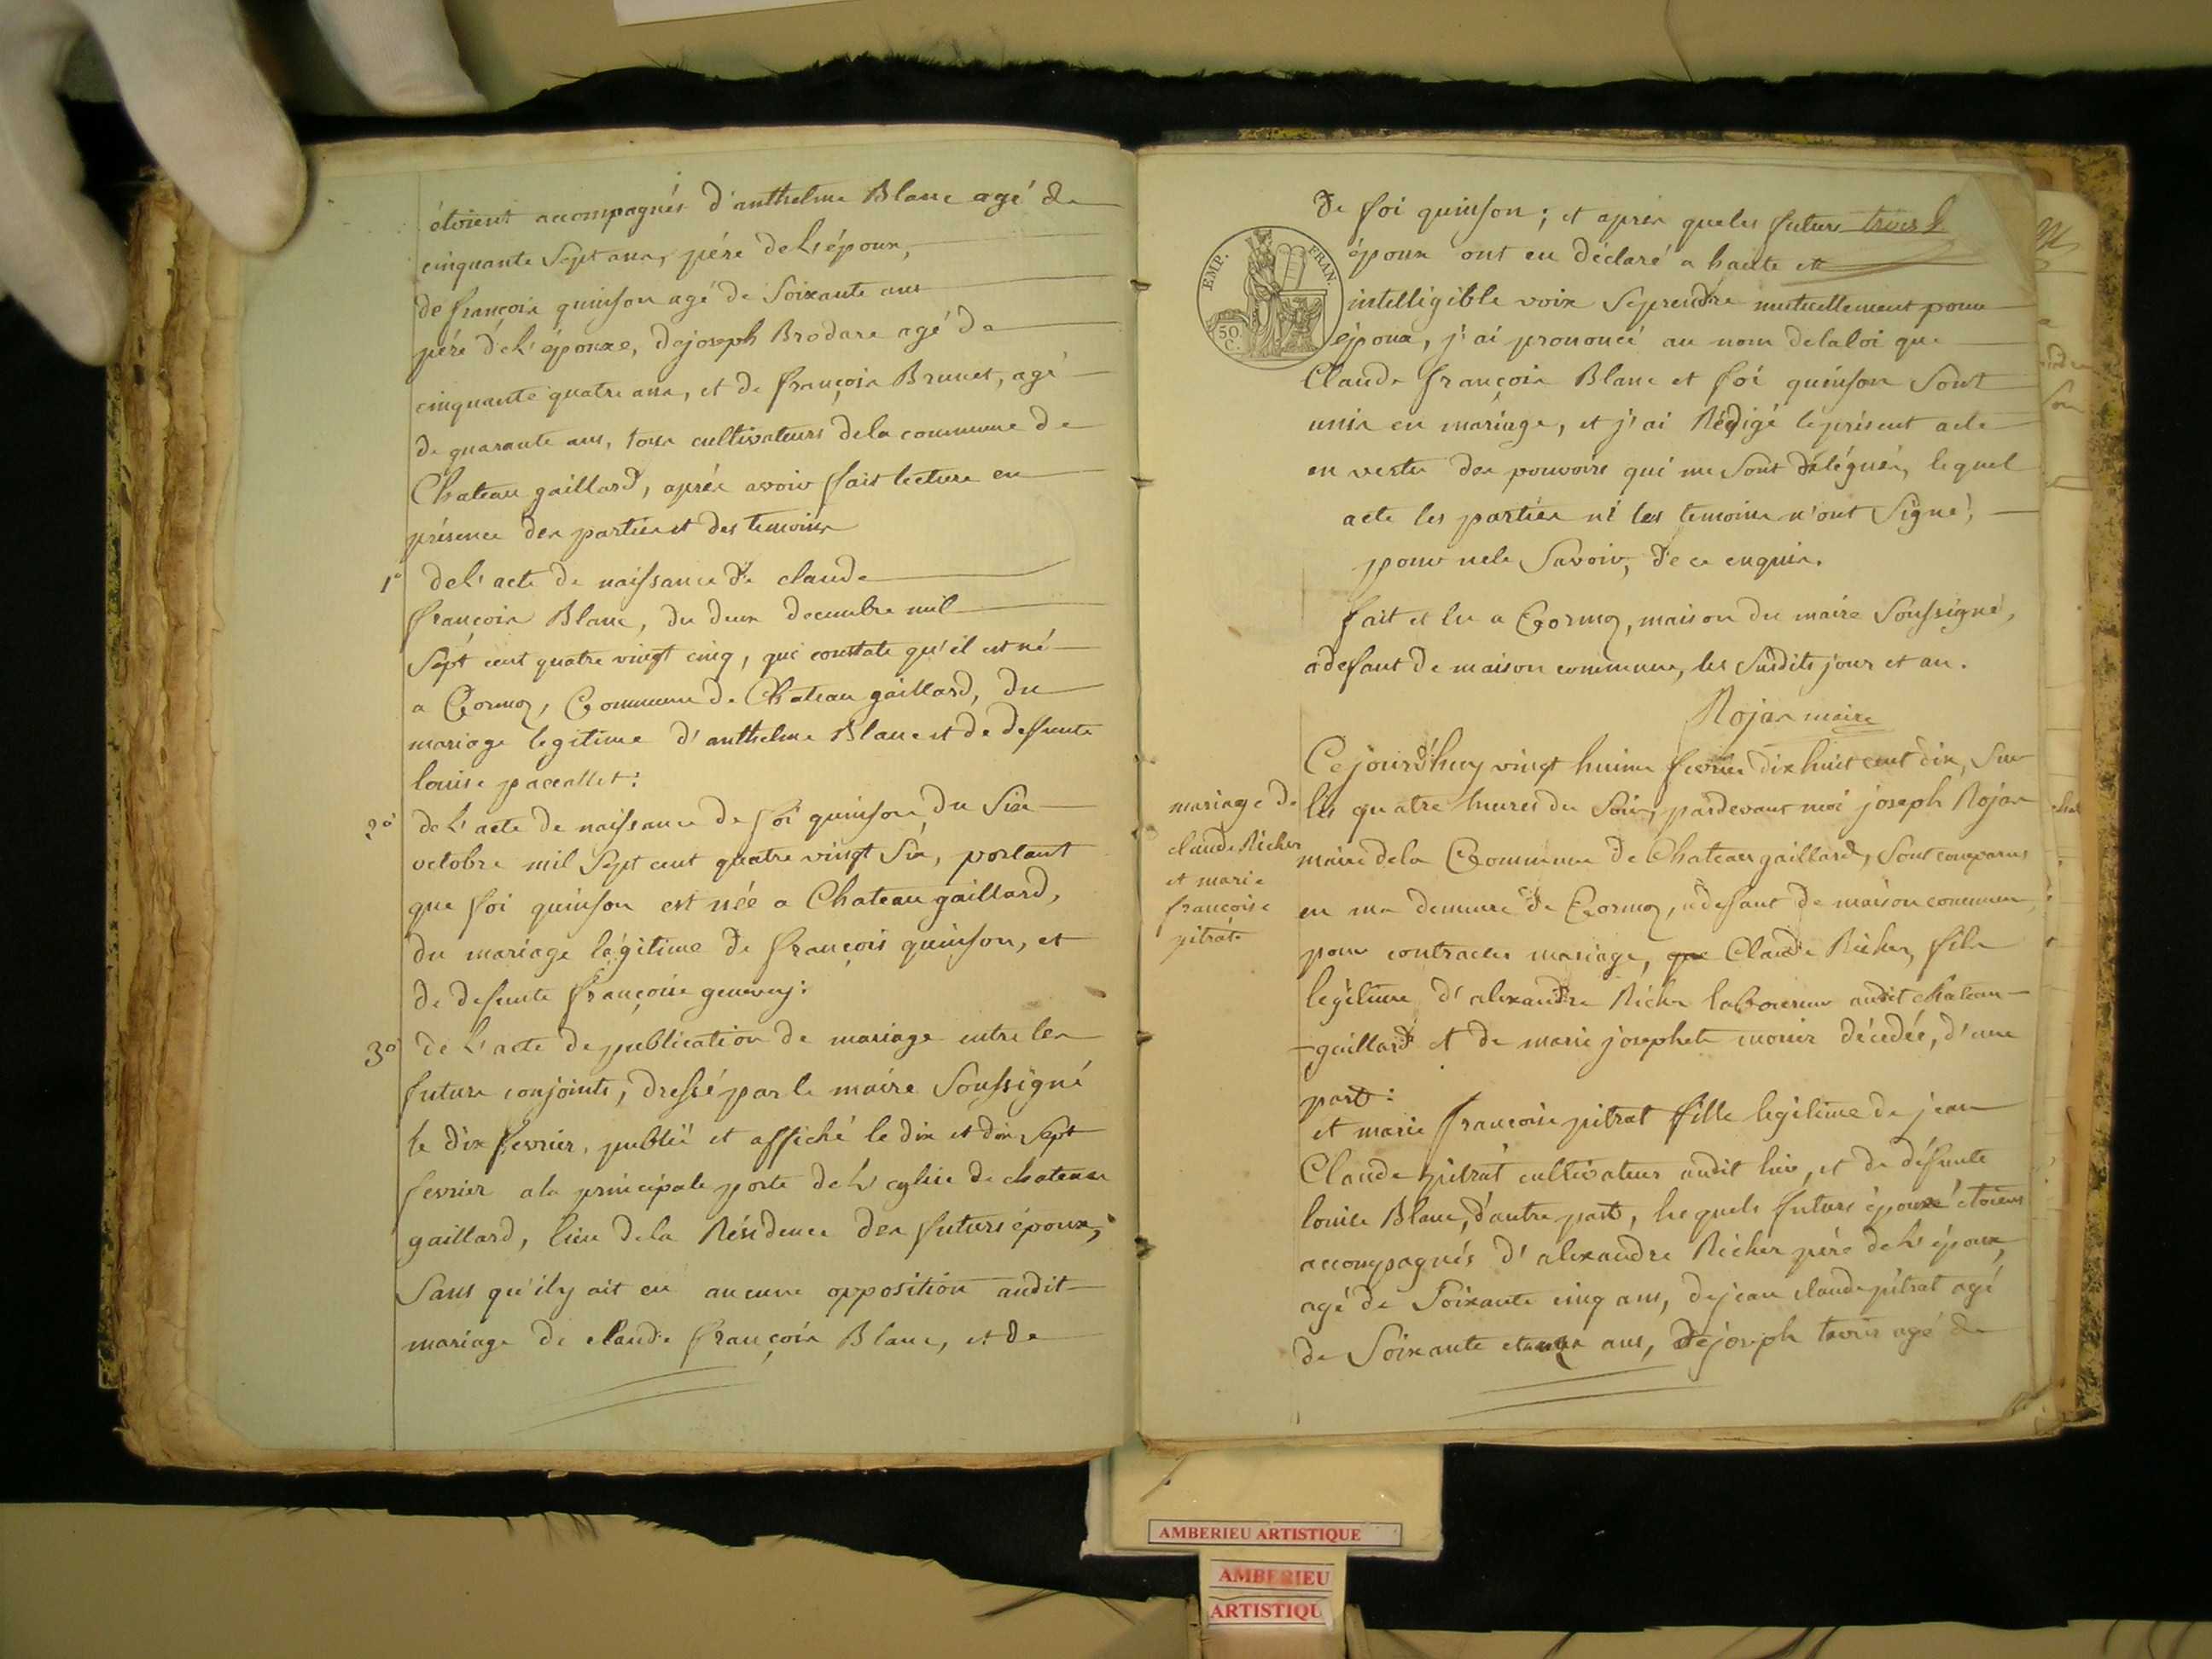 étoient accompagnés d'anthelme Blanc agé de
cinquante Sept ans, pére de l'époux,
de françois quinson agé de Soixante ans
pére de l'épouxe, de joseph Brodare agé de
cinquante quatre ans, et de françois Brunet, agé
de quarante ans, tous cultivateurs de la commune de
Chateau gaillard, aprés avoir fait lecture en
présence des parties et des temoins
1° de l'acte de naissance de claude
françois Blanc, du deux decembre mil
Sept cent quatre vingt cinq, qui constate qu'il est né
a Cormoz, Commune de Chateau gaillard, du
mariage legitime d'anthelme Blanc et de defunte
louise pacallet:
2° de l'acte de naissance de foi quinson du Six
octobre mil Sept cent quatre vingt Six, portant
que foi quinson est née a Chateau gaillard,
du mariage légitime de françois quinson, et
de defunte françoise genevey:
3° de l'acte de publication de mariage entre les
futurs conjoints, dressé par le maire Soussigné
le dix fevrier, publié et affiché le dix et dix Sept
fevrier a la principale porte de l'eglise de chateau
gaillard, lieu de la Résidence des futurs époux,
Sans qu'il y ait eu aucune opposition audit
mariage de claude françois Blanc, et de
de foi quinson; et aprés que les futurs
époux ont eu déclaré a haute et
EMP. FRAN.
50 C.
intelligible voix Se prendre mutuellement pour
époux, j'ai prononcé au nom de la loi que
Claude françois Blanc et foi quinson Sont
unis en mariage, et j'ai Rédigé le présent acte
en vertu des pouvoirs qui me Sont délégués, lequel
acte les parties ni les temoins n'ont Signé,
pour ne le Savoir, de ce enquis.
fait et lu a Cormoz, maison du maire Soussigné,
a defaut de maison commune, les Susdits jour et an.
Rojan maire
mariage de
claude Richer
et marie
françoise
pitrat
Ce jourd'huy vingt huit fevrier dix huit cent dix, Sur
les quatre heures du Soir, pardevant moi joseph Rojan
maire de la Commune de Chateau gaillard, Sont comparus
en ma demeure de Cormoz, a defaut de maison commune,
pour contracter mariage, que Claude Richer, fils
legitime d'alexandre Richer laboureur audit chateau-
-gaillard et de marie josephete monier décedée, d'une
part:
et marie françoise pitrat fille legitime de jean
Claude pitrat cultivateur audit lieu, et de défunte
louise Blanc, d'autre part, lesquels futurs époux étoient
accompagnés d'alexandre Richer pére de l'époux,
agé de Soixante cinq ans, de jean claude pitrat agé
de Soixante et ans, de joseph agé de
AMBERIEU ARTISTIQUE
AMBERIEU
ARTISTIQU